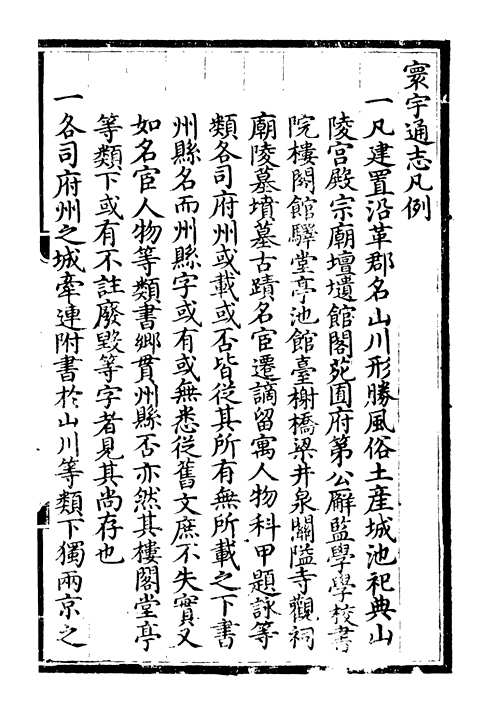 寰宇通志凡例
一凡建置沿革郡名山川形勝風俗土産城池祀典山
陵宫殿宗廟壇壝館閣苑囿府第公廨監學學校書
院樓閣館驛堂亭池館臺榭橋梁井泉關隘寺觀祠
廟陵墓墳墓古蹟名宦遷謫留寓人物科甲題詠等
類各司府州或載或否皆從其所有無所載之下書
州縣名而州縣字或有或無悉從舊文庶不失實又
如名宦人物等類書鄉貫州縣否亦然其樓閣堂亭
等類下或有不註廢毀等字者見其尚存也
一各司府州之城牽連附書於山川等類下獨兩京之